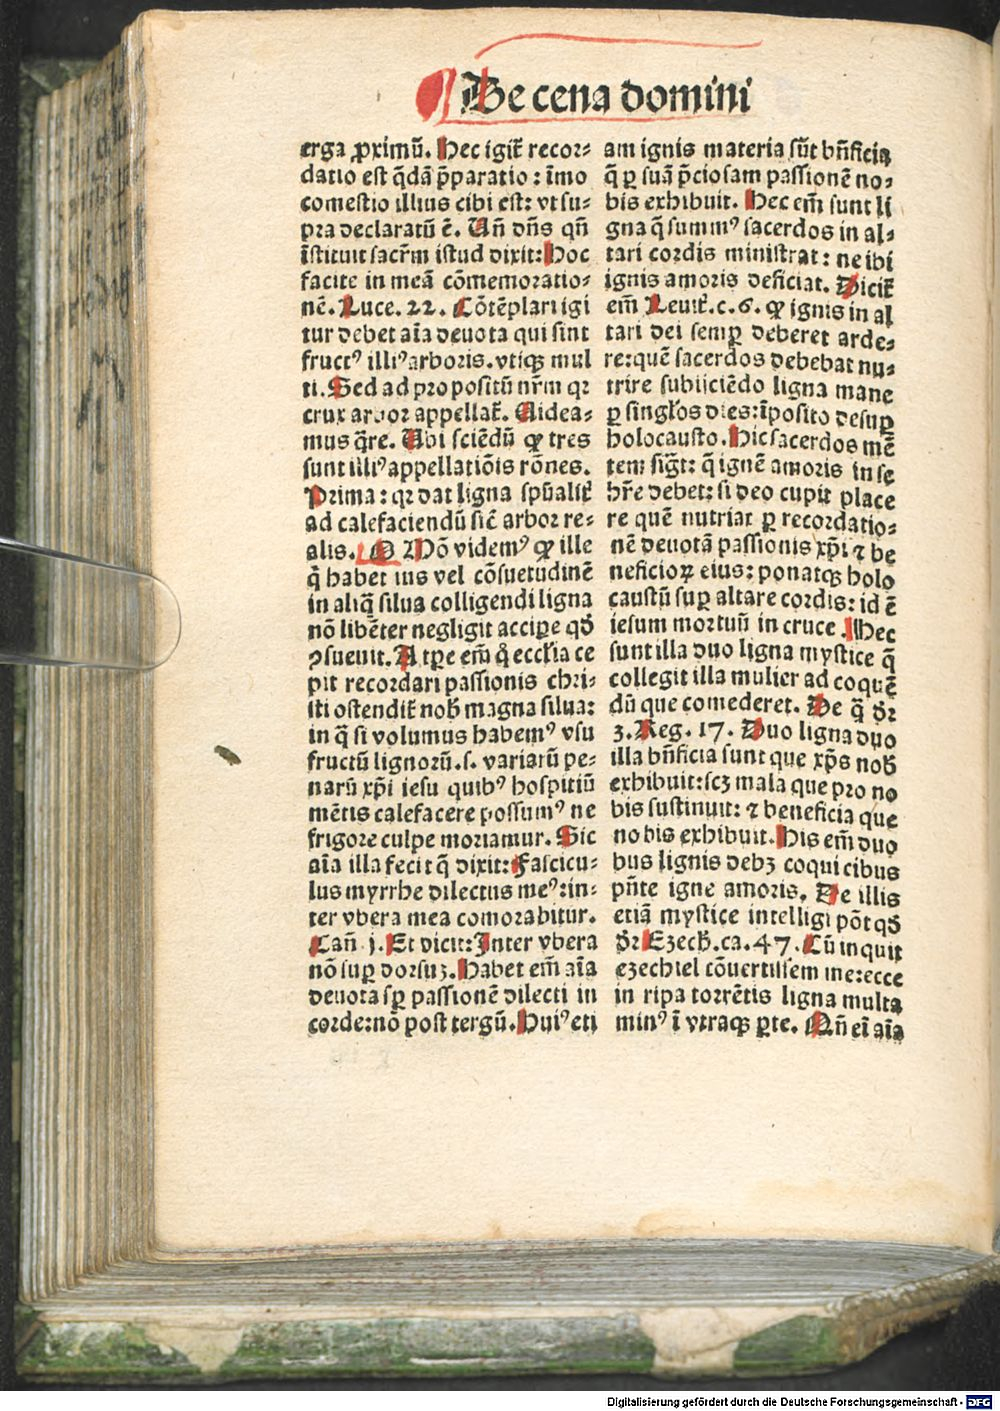 De cena domini
erga ꝓximū. Hec igit̄ recor⸗
datio est q̄dā p̄paratio: īmo
comestio illius cibi est: vt su⸗
pra declaratū ē. Uñ dñs qñ
īstituit sacr̄m istud dixit: Hoc
facite in meā cōmemoratio⸗
nē. Luce. 22. Cōtēplari igi
tur debet aīa deuota qui sint
fructꝰ illiꝰ arboris. vtiqꝫ mul
ti. Sed ad propositū nr̄m qꝛ
crux arbor appellat̄. Uidea⸗
mus q̄re. Ubi sciēdū ꝙ tres
sunt illiꝰ appellatiōis rōnes.
Prima: qꝛ dat ligna spūalit̄
ad calefaciendū sic̄ arbor re⸗
alis. Nō videmꝰ ꝙ ille
q̄ habet ius vel cōsuetudinē
in aliq̄ silua colligendi ligna
nō libēter negligit accipe qđ
ꝯsueuit. A tꝑe em̄ q̊ eccl̄ia ce
pit recordari passionis chri⸗
sti ostendit̄ nob̄ magna silua:
in q̄ si volumus habemꝰ vsu
fructū lignorū. s. variarū pe⸗
narū xp̄i iesu quibꝰ hospitiū
mētis calefacere possumꝰ ne
frigore culpe moriamur. Sic
aīa illa fecit q̄ dixit: Fascicu⸗
lus myrrhe dilectus meꝰ: in⸗
ter vbera mea comorabitur.
Cañ. j. Et dicit: Inter vbera
nō suꝑ dorsuꝫ. Habet em̄ aīa
deuota sꝑ passionē dilecti in
corde: nō post tergū. Huiꝰ eti
am ignis materia sūt bñficia
q̄ ꝑ suā p̄ciosam passionē no⸗
bis exhibuit. Hec em̄ sunt li
gna q̄ summꝰ sacerdos in al⸗
tari cordis ministrat: ne ibi
ignis amoris deficiat. Dicit̄
em̄ Leuit̄. c. 6. ꝙ ignis in al
tari dei semꝑ deberet arde⸗
re: quē sacerdos debebat nu⸗
trire subiiciēdo ligna mane
ꝑ singl̄os dies: īposito desuꝑ
holocausto. Hic sacerdos mē
tem sigt̄: q̄ ignē amoris in se
hr̄e debet: si deo cupit place
re quē nutriat ꝑ recordatio⸗
nē deuotā passionis xp̄i ⁊ be
neficioꝝ eius: ponatqꝫ holo
caustū suꝑ altare cordis: id ē
iesum mortuū in cruce. Hec
sunt illa duo ligna mystice q̄
collegit illa mulier ad coquē
dū que comederet. De q̄ dr̄
3. Reg. 17. Duo ligna duo
illa bñficia sunt que xp̄s nob̄
exhibuit: scꝫ mala que pro no
bis sustinuit: ⁊ beneficia que
nobis exhibuit. His em̄ duo
bus lignis debꝫ coqui cibus
pñte igne amoris. De illis
etiā mystice intelligi pōt qđ
dr̄ Ezech̄. ca. 47. Cū inquit
ezechiel cōuertissem me: ecce
in ripa torrētis ligna multa
nimꝰ ī vtraqꝫ ꝑte. Añ ei aīa
Digitalisierung gefördert durch die Deutsche Forschungsgemeinschaft - DFG